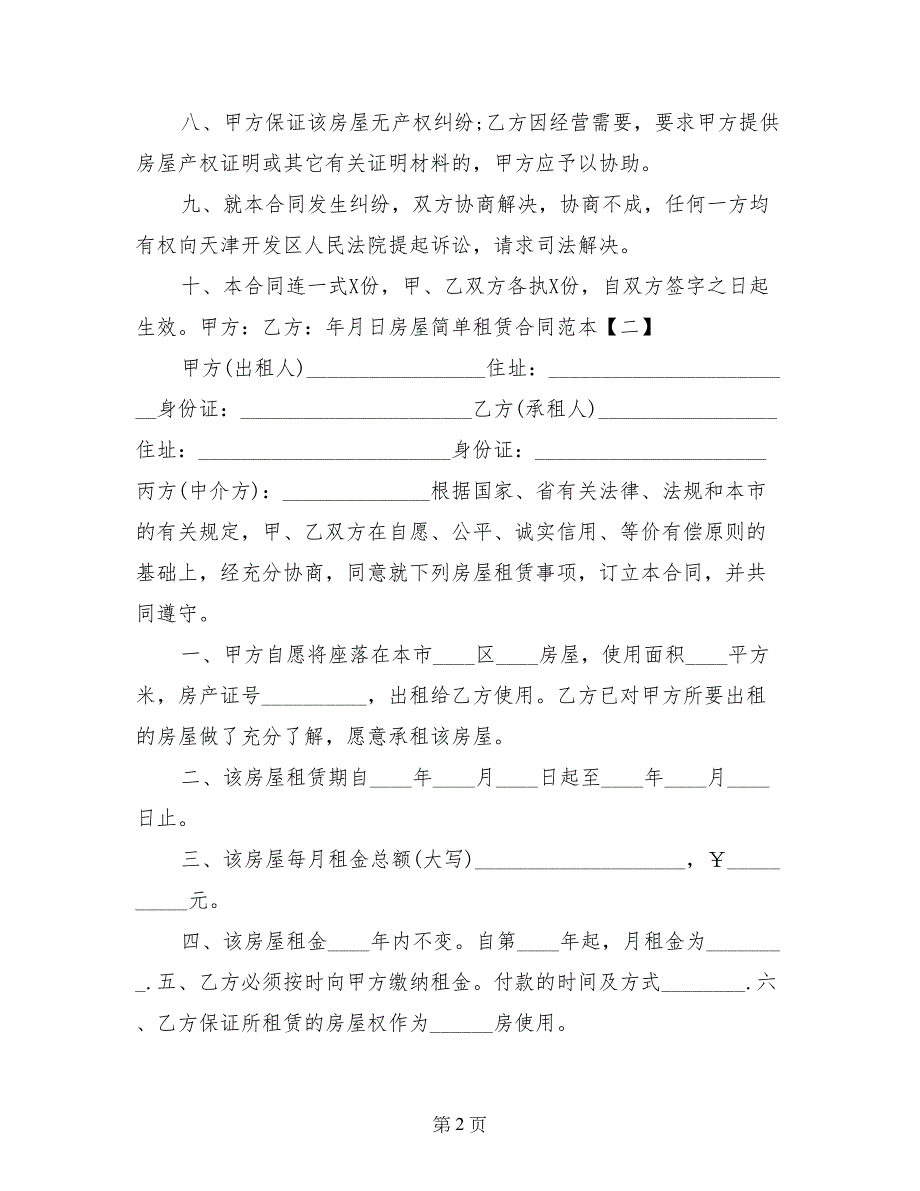 八、甲方保证该房屋无产权纠纷;乙方因经营需要，要求甲方提供
房屋产权证明或其它有关证明材料的，甲方应予以协助。
九、就本合同发生纠纷，双方协商解决，协商不成，任何一方均
有权向天津开发区人民法院提起诉讼，请求司法解决。
十、本合同连一式X份，甲、乙双方各执X份，自双方签字之日起
生效。甲方：乙方：年月日房屋简单租赁合同范本【二】
甲方(出租人)_________________住址：______________________
__身份证：______________________乙方(承租人)_________________
住址：________________________身份证：______________________
丙方(中介方)：______________根据国家、省有关法律、法规和本市
的有关规定，甲、乙双方在自愿、公平、诚实信用、等价有偿原则的
基础上，经充分协商，同意就下列房屋租赁事项，订立本合同，并共
同遵守。
一、甲方自愿将座落在本市____区____房屋，使用面积____平方
米，房产证号__________，出租给乙方使用。乙方已对甲方所要出租
的房屋做了充分了解，愿意承租该房屋。
二、该房屋租赁期自____年____月____日起至____年____月____
日止。
三、该房屋每月租金总额(大写)____________________，￥_____
_____元。
四、该房屋租金____年内不变。自第____年起，月租金为_______
_.五、乙方必须按时向甲方缴纳租金。付款的时间及方式________.六
、乙方保证所租赁的房屋权作为______房使用。
第 2 页